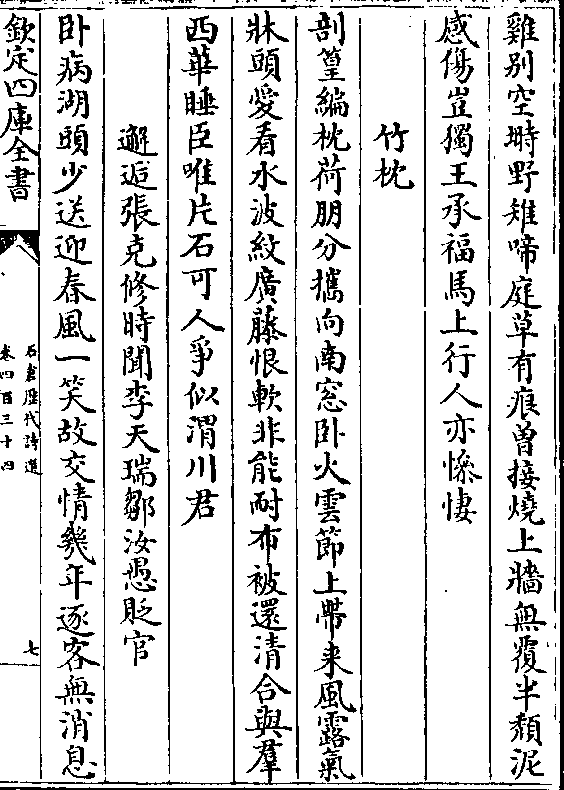 雞别空塒野雉啼庭草有痕曽接燒上牆無覆半頽泥
感傷豈獨王承福馬上行人亦慘悽
竹枕
剖篁編枕荷朋分攜向南窓卧火雲節上帶来風露氣
牀頭愛看水波紋廣藤恨軟非能耐布被還清合與羣
西華睡臣唯片石可人爭似渭川君
邂逅張克修時聞李天瑞鄒汝愚貶官
卧病湖頭少送迎春風一笑故交情幾年逐客無消息
欽定四庫全書
石倉歴代詩選
卷四百三十四
七